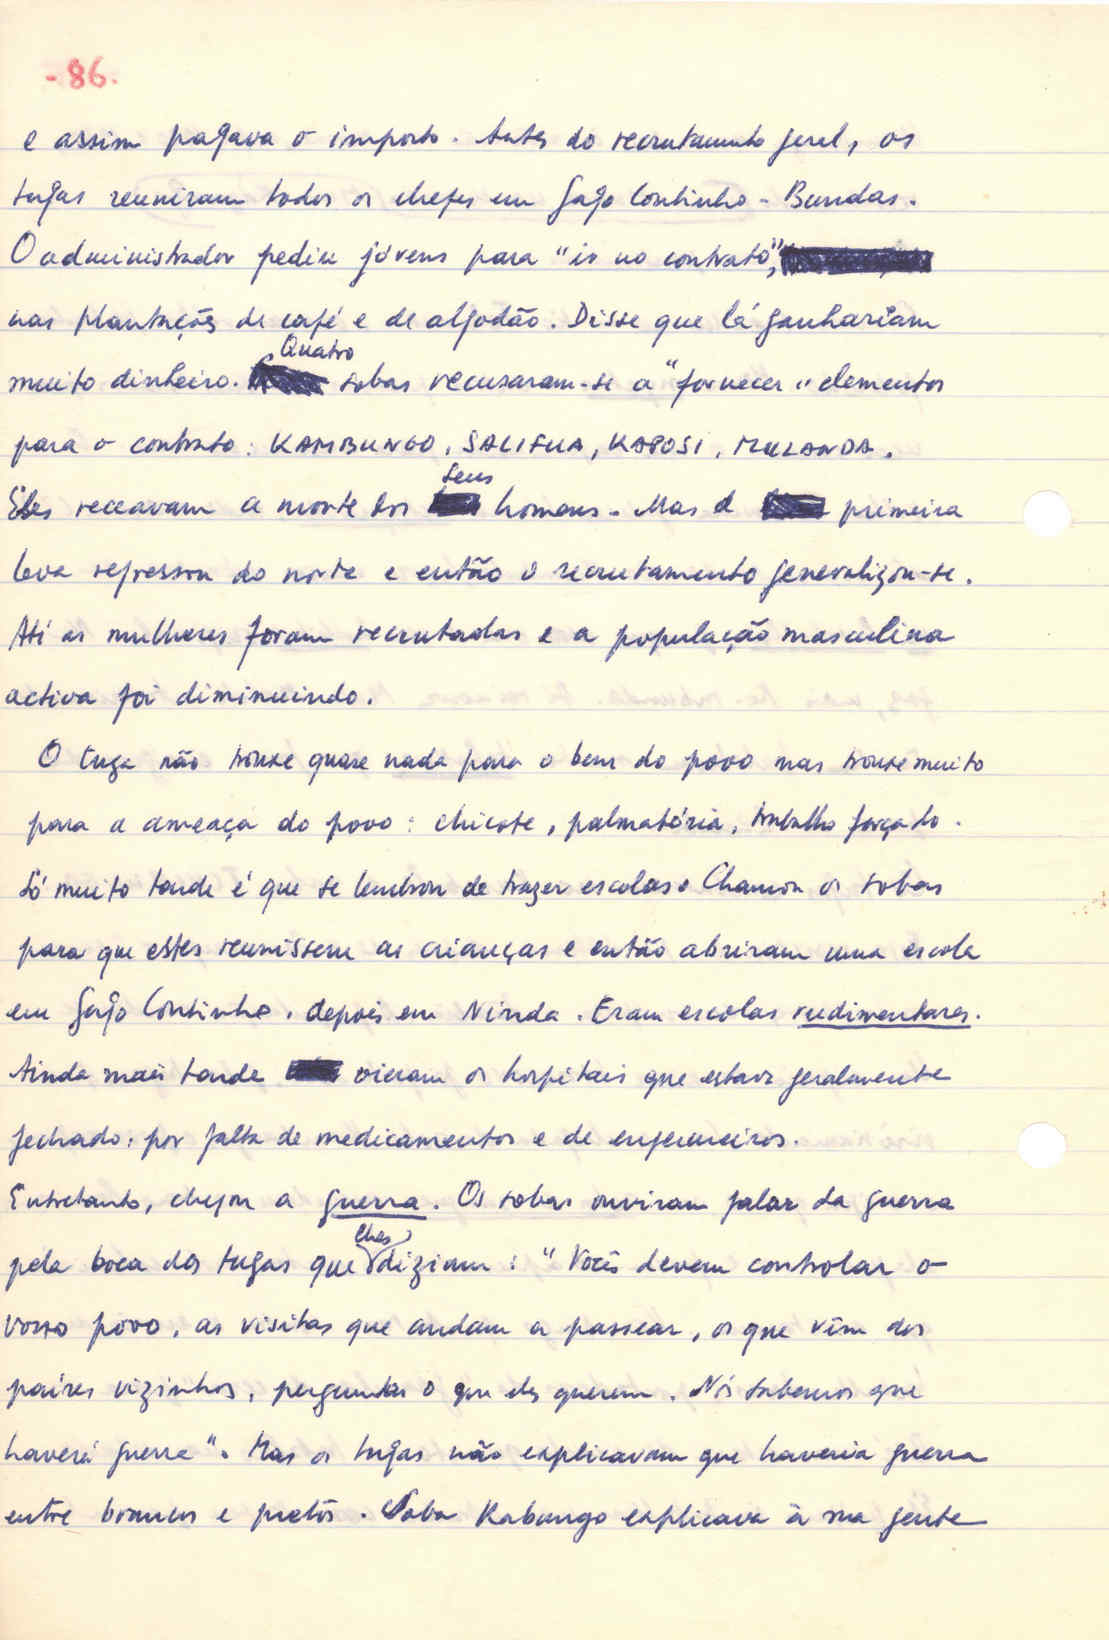 - 86.
e assim pagava o imposto. Antes do recrutamento geral, os
tugas reuniram todos os chefes em Gago Coutinho - Bundas.
O administrador pediu jóvens para "ir no contrato",
nas plantações de café e de algodão. Disse que lá ganhariam
muito dinheiro. Quatro sobas recusaram-se a "fornecer" elementos
para o contrato: KAMBUNGO, SALIFUA, KAPOSI, MULANDA.
Eles receavam a morte dos seus homens. Mas a primeira
leva regressou do norte e então o recrutamento generalizou-se.
Até as mulheres foram recrutadas e a população masculina
activa foi diminuindo.
O tuga não trouxe quase nada para o bem do povo mas trouxe muito
para a ameaça do povo: chicote, palmatória, trabalho forçado.
Só muito tarde é que se lembrou de trazer escolas. Chamou os sobas
para que estes reunissem as crianças e então abriram uma escola
em Gago Coutinho, depois em Ninda. Eram escolas rudimentares.
Ainda mais tarde vieram os hospitais que estava geralmente
fechado: por falta de medicamentos e de enfermeiros.
Entretanto, chegou a guerra. Os sobas ouviram falar da guerra
pela boca dos tugas que lhes diziam: "Vocês devem controlar o
vosso povo, as visitas que andam a passear, os que vêm dos
países vizinhos, perguntar o que eles querem. Nós sabemos que
haverá guerra". Mas os tugas não explicavam que haveria guerra
entre brancos e pretos. Soba Kabungo explicava à sua gente